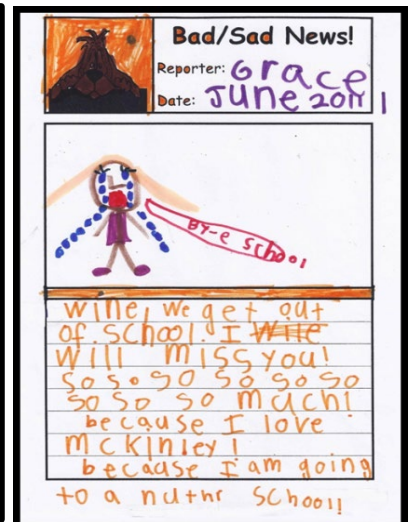 Bad/Sad News!
Reporter: Grace
Date: June 2011
BY-e School
wine, we get out
of school. I wile
will miss you!
So so so so so so
so so so much!
because I love
mckinley!
because I am going
to a nuthr school!!